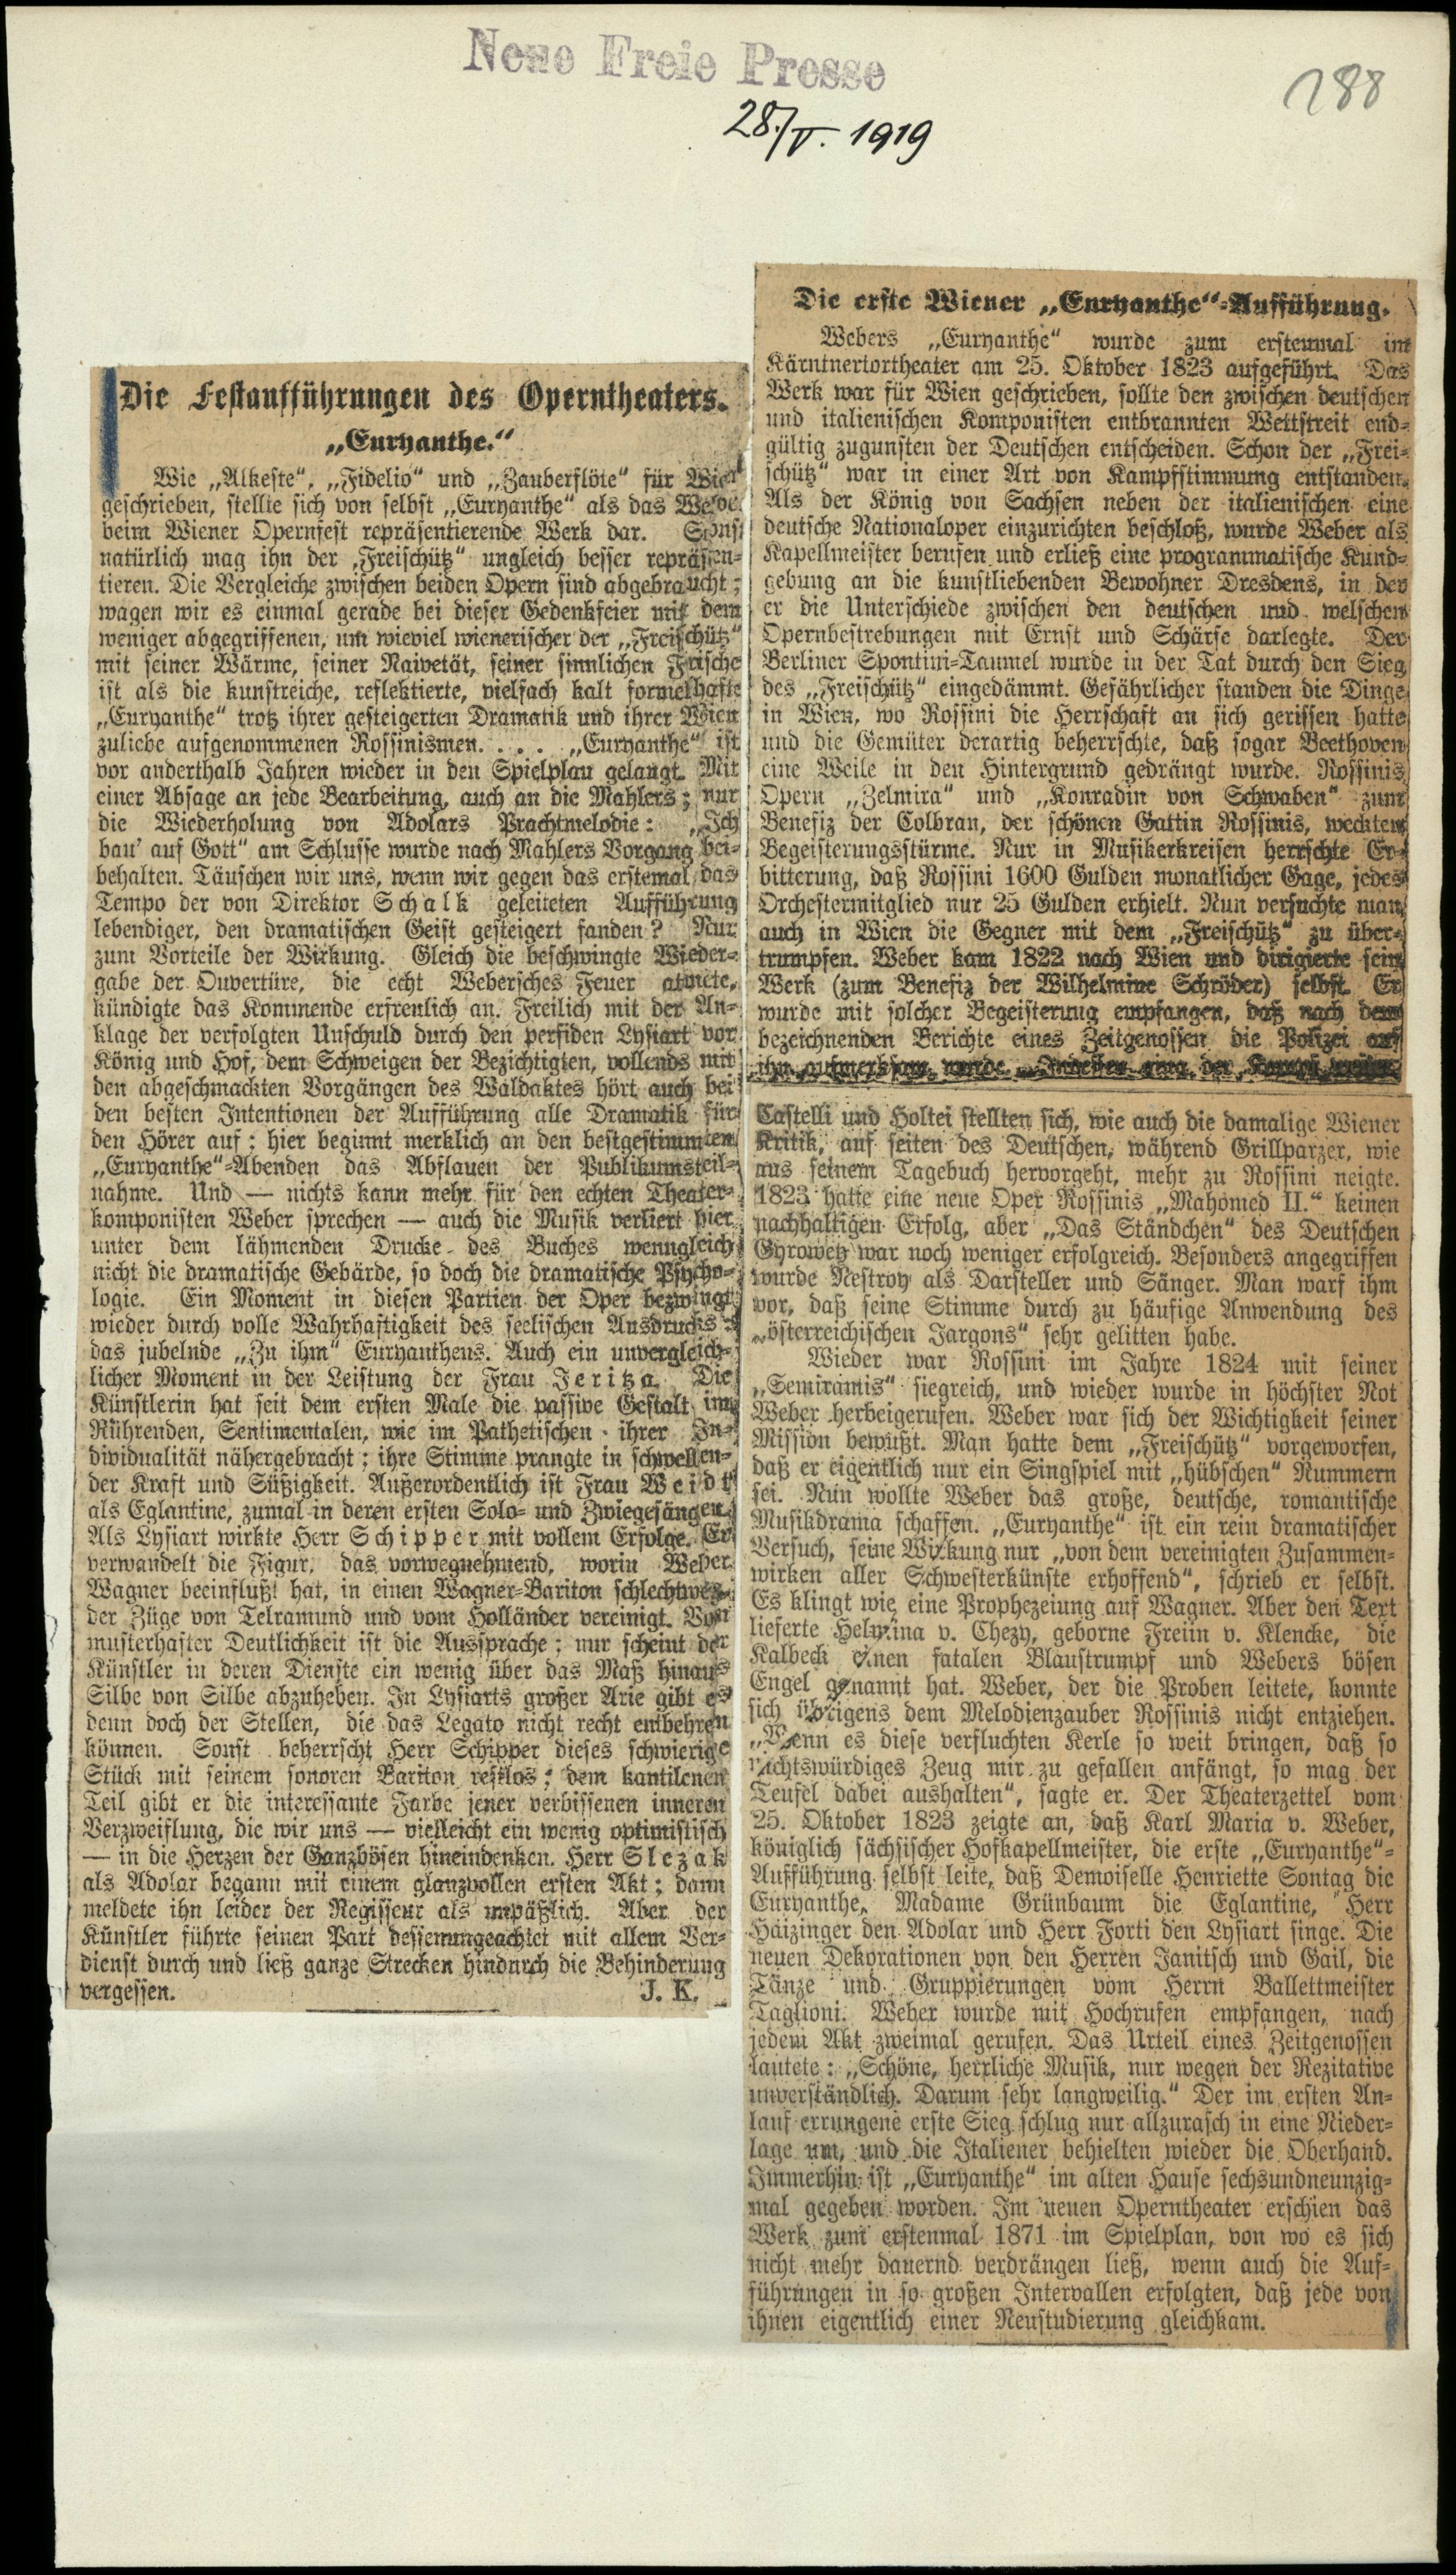 Neue Freie Presse
288
28./V. 1919
Die Festaufführungen des Operntheaters.
„Euryanthe.“
Wie „Alkeste“, „Fidelio“ und „Zauberflöte“ für Wien
geschrieben, stellte sich von selbst „Euryanthe“ als das Weber
beim Wiener Opernfest repräsentierende Werk dar. Sonst
natürlich mag ihn der „Freischütz“ ungleich besser repräsen-
tieren. Die Vergleiche zwischen beiden Opern sind abgebraucht;
wagen wir es einmal gerade bei dieser Gedenkfeier mit dem
weniger abgegriffenen, um wieviel wienerischer der „Freischütz“
mit seiner Wärme, seiner Naivetät, seiner sinnlichen Frische
ist als die kunstreiche, reflektierte, vielfach kalt formelhafte
„Euryanthe“ trotz ihrer gesteigerten Dramatik und ihrer Wien
zuliebe aufgenommenen Rossinismen. . . . „Euryanthe“ ist
vor anderthalb Jahren wieder in den Spielplan gelangt. Mit
einer Absage an jede Bearbeitung, auch an die Mahlers; nur
die Wiederholung von Adolars Prachtmelodie: „Ich
bau' auf Gott“ am Schlusse wurde nach Mahlers Vorgang bei-
behalten. Täuschen wir uns, wenn wir gegen das erstemal das
Tempo der von Direktor Schalk geleiteten Aufführung
lebendiger, den dramatischen Geist gesteigert fanden? Nur
zum Vorteile der Wirkung. Gleich die beschwingte Wieder-
gabe der Ouvertüre, die echt Webersches Feuer atmete,
kündigte das Kommende erfreulich an. Freilich mit der An-
klage der verfolgten Unschuld durch den perfiden Lysiart vor
König und Hof, dem Schweigen der Bezichtigten, vollends mit
den abgeschmackten Vorgängen des Waldaktes hört auch bei
den besten Intentionen der Aufführung alle Dramatik für
den Hörer auf: hier beginnt merklich an den bestgestimmten
„Euryanthe“-Abenden das Abflauen der Publikumsteil-
nahme. Und — nichts kann mehr für den echten Theater-
komponisten Weber sprechen — auch die Musik verliert hier
unter dem lähmenden Drucke des Buches wenngleich
nicht die dramatische Gebärde, so doch die dramatische Psycho-
logie. Ein Moment in diesen Partien der Oper bezwingt
wieder durch volle Wahrhaftigkeit des seelischen Ausdrucks:
das jubelnde „Zu ihm“ Euryanthens. Auch ein unvergleich-
licher Moment in der Leistung der Frau Jeritza. Die
Künstlerin hat seit dem ersten Male die passive Gestalt im
Rührenden, Sentimentalen, wie im Pathetischen ihrer In-
dividualität nähergebracht; ihre Stimme prangte in schwellen-
der Kraft und Süßigkeit. Außerordentlich ist Frau Weidt
als Eglantine, zumal in deren ersten Solo- und Zwiegesängen.
Als Lysiart wirkte Herr Schipper mit vollem Erfolge. Er
verwandelt die Figur, das vorwegnehmend, worin Weber
Wagner beeinflußt hat, in einen Wagner-Bariton schlechtweg,
der Züge von Telramund und vom Holländer vereinigt. Von
musterhafter Deutlichkeit ist die Aussprache; nur scheint der
Künstler in deren Dienste ein wenig über das Maß hinaus
Silbe von Silbe abzuheben. In Lysiarts großer Arie gibt es
denn doch der Stellen, die das Legato nicht recht entbehren
können. Sonst beherrscht Herr Schipper dieses schwierige
Stück mit seinem sonoren Bariton restlos; dem kantilenen
Teil gibt er die interessante Farbe jener verbissenen inneren
Verzweiflung, die wir uns — vielleicht ein wenig optimistisch
— in die Herzen der Ganzbösen hineindenken. Herr Slezak
als Adolar begann mit einem glanzvollen ersten Akt; dann
meldete ihn leider der Regisseur als unpäßlich. Aber der
Künstler führte seinen Part dessenungeachtet mit allem Ver-
dienst durch und ließ ganze Strecken hindurch die Behinderung
vergessen. J. K.
Die erste Wiener „Euryanthe“-Aufführung.
Webers „Euryanthe“ wurde zum erstenmal im
Kärntnertortheater am 25. Oktober 1823 aufgeführt. Das
Werk war für Wien geschrieben, sollte den zwischen deutschen
und italienischen Komponisten entbrannten Wettstreit end-
gültig zugunsten der Deutschen entscheiden. Schon der „Frei-
schütz“ war in einer Art von Kampfstimmung entstanden.
Als der König von Sachsen neben der italienischen eine
deutsche Nationaloper einzurichten beschloß, wurde Weber als
Kapellmeister berufen und erließ eine programmatische Kund-
gebung an die kunstliebenden Bewohner Dresdens, in der
er die Unterschiede zwischen den deutschen und welschen
Opernbestrebungen mit Ernst und Schärfe darlegte. Der
Berliner Spontini-Taumel wurde in der Tat durch den Sieg
des „Freischütz“ eingedämmt. Gefährlicher standen die Dinge
in Wien, wo Rossini die Herrschaft an sich gerissen hatte
und die Gemüter derartig beherrschte, daß sogar Beethoven
eine Weile in den Hintergrund gedrängt wurde. Rossinis
Opern „Zelmira“ und „Konradin von Schwaben“ zum
Benefiz der Colbran, der schönen Gattin Rossinis, weckten
Begeisterungsstürme. Nur in Musikerkreisen herrschte Er-
bitterung, daß Rossini 1600 Gulden monatlicher Gage, jedes
Orchestermitglied nur 25 Gulden erhielt. Nun versuchte man
auch in Wien die Gegner mit dem „Freischütz“ zu über-
trumpfen. Weber kam 1822 nach Wien und dirigierte sein
Werk (zum Benefiz der Wilhelmine Schröder) selbst. Er
wurde mit solcher Begeisterung empfangen, daß nach dem
bezeichnenden Berichte eines Zeitgenossen die Polizei auf
ihn aufmerksam wurde. Indessen ging der Kampf weiter.
Castelli und Holtei stellten sich, wie auch die damalige Wiener
Kritik, auf seiten des Deutschen, während Grillparzer, wie
aus seinem Tagebuch hervorgeht, mehr zu Rossini neigte.
1823 hatte eine neue Oper Rossinis „Mahomed II.“ keinen
nachhaltigen Erfolg, aber „Das Ständchen“ des Deutschen
Gyrowetz war noch weniger erfolgreich. Besonders angegriffen
wurde Nestroy als Darsteller und Sänger. Man warf ihm
vor, daß seine Stimme durch zu häufige Anwendung des
„österreichischen Jargons“ sehr gelitten habe.
Wieder war Rossini im Jahre 1824 mit seiner
„Semiramis“ siegreich, und wieder wurde in höchster Not
Weber herbeigerufen. Weber war sich der Wichtigkeit seiner
Mission bewußt. Man hatte dem „Freischütz“ vorgeworfen,
daß er eigentlich nur ein Singspiel mit „hübschen“ Nummern
sei. Nun wollte Weber das große, deutsche, romantische
Musikdrama schaffen. „Euryanthe“ ist ein rein dramatischer
Versuch, seine Wirkung nur „von dem vereinigten Zusammen-
wirken aller Schwesterkünste erhoffend“, schrieb er selbst.
Es klingt wie eine Prophezeiung auf Wagner. Aber den Text
lieferte Helmina v. Chezy, geborne Freiin v. Klencke, die
Kalbeck einen fatalen Blaustrumpf und Webers bösen
Engel genannt hat. Weber, der die Proben leitete, konnte
sich übrigens dem Melodienzauber Rossinis nicht entziehen.
„Wenn es diese verfluchten Kerle so weit bringen, daß so
nichtswürdiges Zeug mir zu gefallen anfängt, so mag der
Teufel dabei aushalten“, sagte er. Der Theaterzettel vom
25. Oktober 1823 zeigte an, daß Karl Maria v. Weber,
königlich sächsischer Hofkapellmeister, die erste „Euryanthe“-
Aufführung selbst leite, daß Demoiselle Henriette Sontag die
Euryanthe, Madame Grünbaum die Eglantine, Herr
Haizinger den Adolar und Herr Forti den Lysiart singe. Die
neuen Dekorationen von den Herren Janitsch und Gail, die
Tänze und Gruppierungen vom Herrn Ballettmeister
Taglioni. Weber wurde mit Hochrufen empfangen, nach
jedem Akt zweimal gerufen. Das Urteil eines Zeitgenossen
lautete: „Schöne, herrliche Musik, nur wegen der Rezitative
unverständlich. Darum sehr langweilig.“ Der im ersten An-
lauf errungene erste Sieg schlug nur allzurasch in eine Nieder-
lage um, und die Italiener behielten wieder die Oberhand.
Immerhin ist „Euryanthe“ im alten Hause sechsundneunzig-
mal gegeben worden. Im neuen Operntheater erschien das
Werk zum erstenmal 1871 im Spielplan, von wo es sich
nicht mehr dauernd verdrängen ließ, wenn auch die Auf-
führungen in so großen Intervallen erfolgten, daß jede von
ihnen eigentlich einer Neustudierung gleichkam.